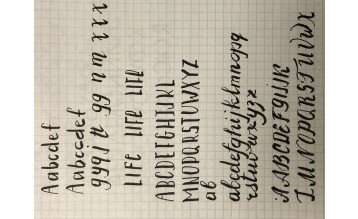 Aabcdef
Aabccdef
gyqj tt gg n m x x x
LIFE LIFE LIFE
ABCDEFGHIJKL
MNOPQRSTUWXYZ
ab
abcdefghijklmnopq
rstuvwxyzz
AABCDEFGIJK
LMNOPQRSTUVWX